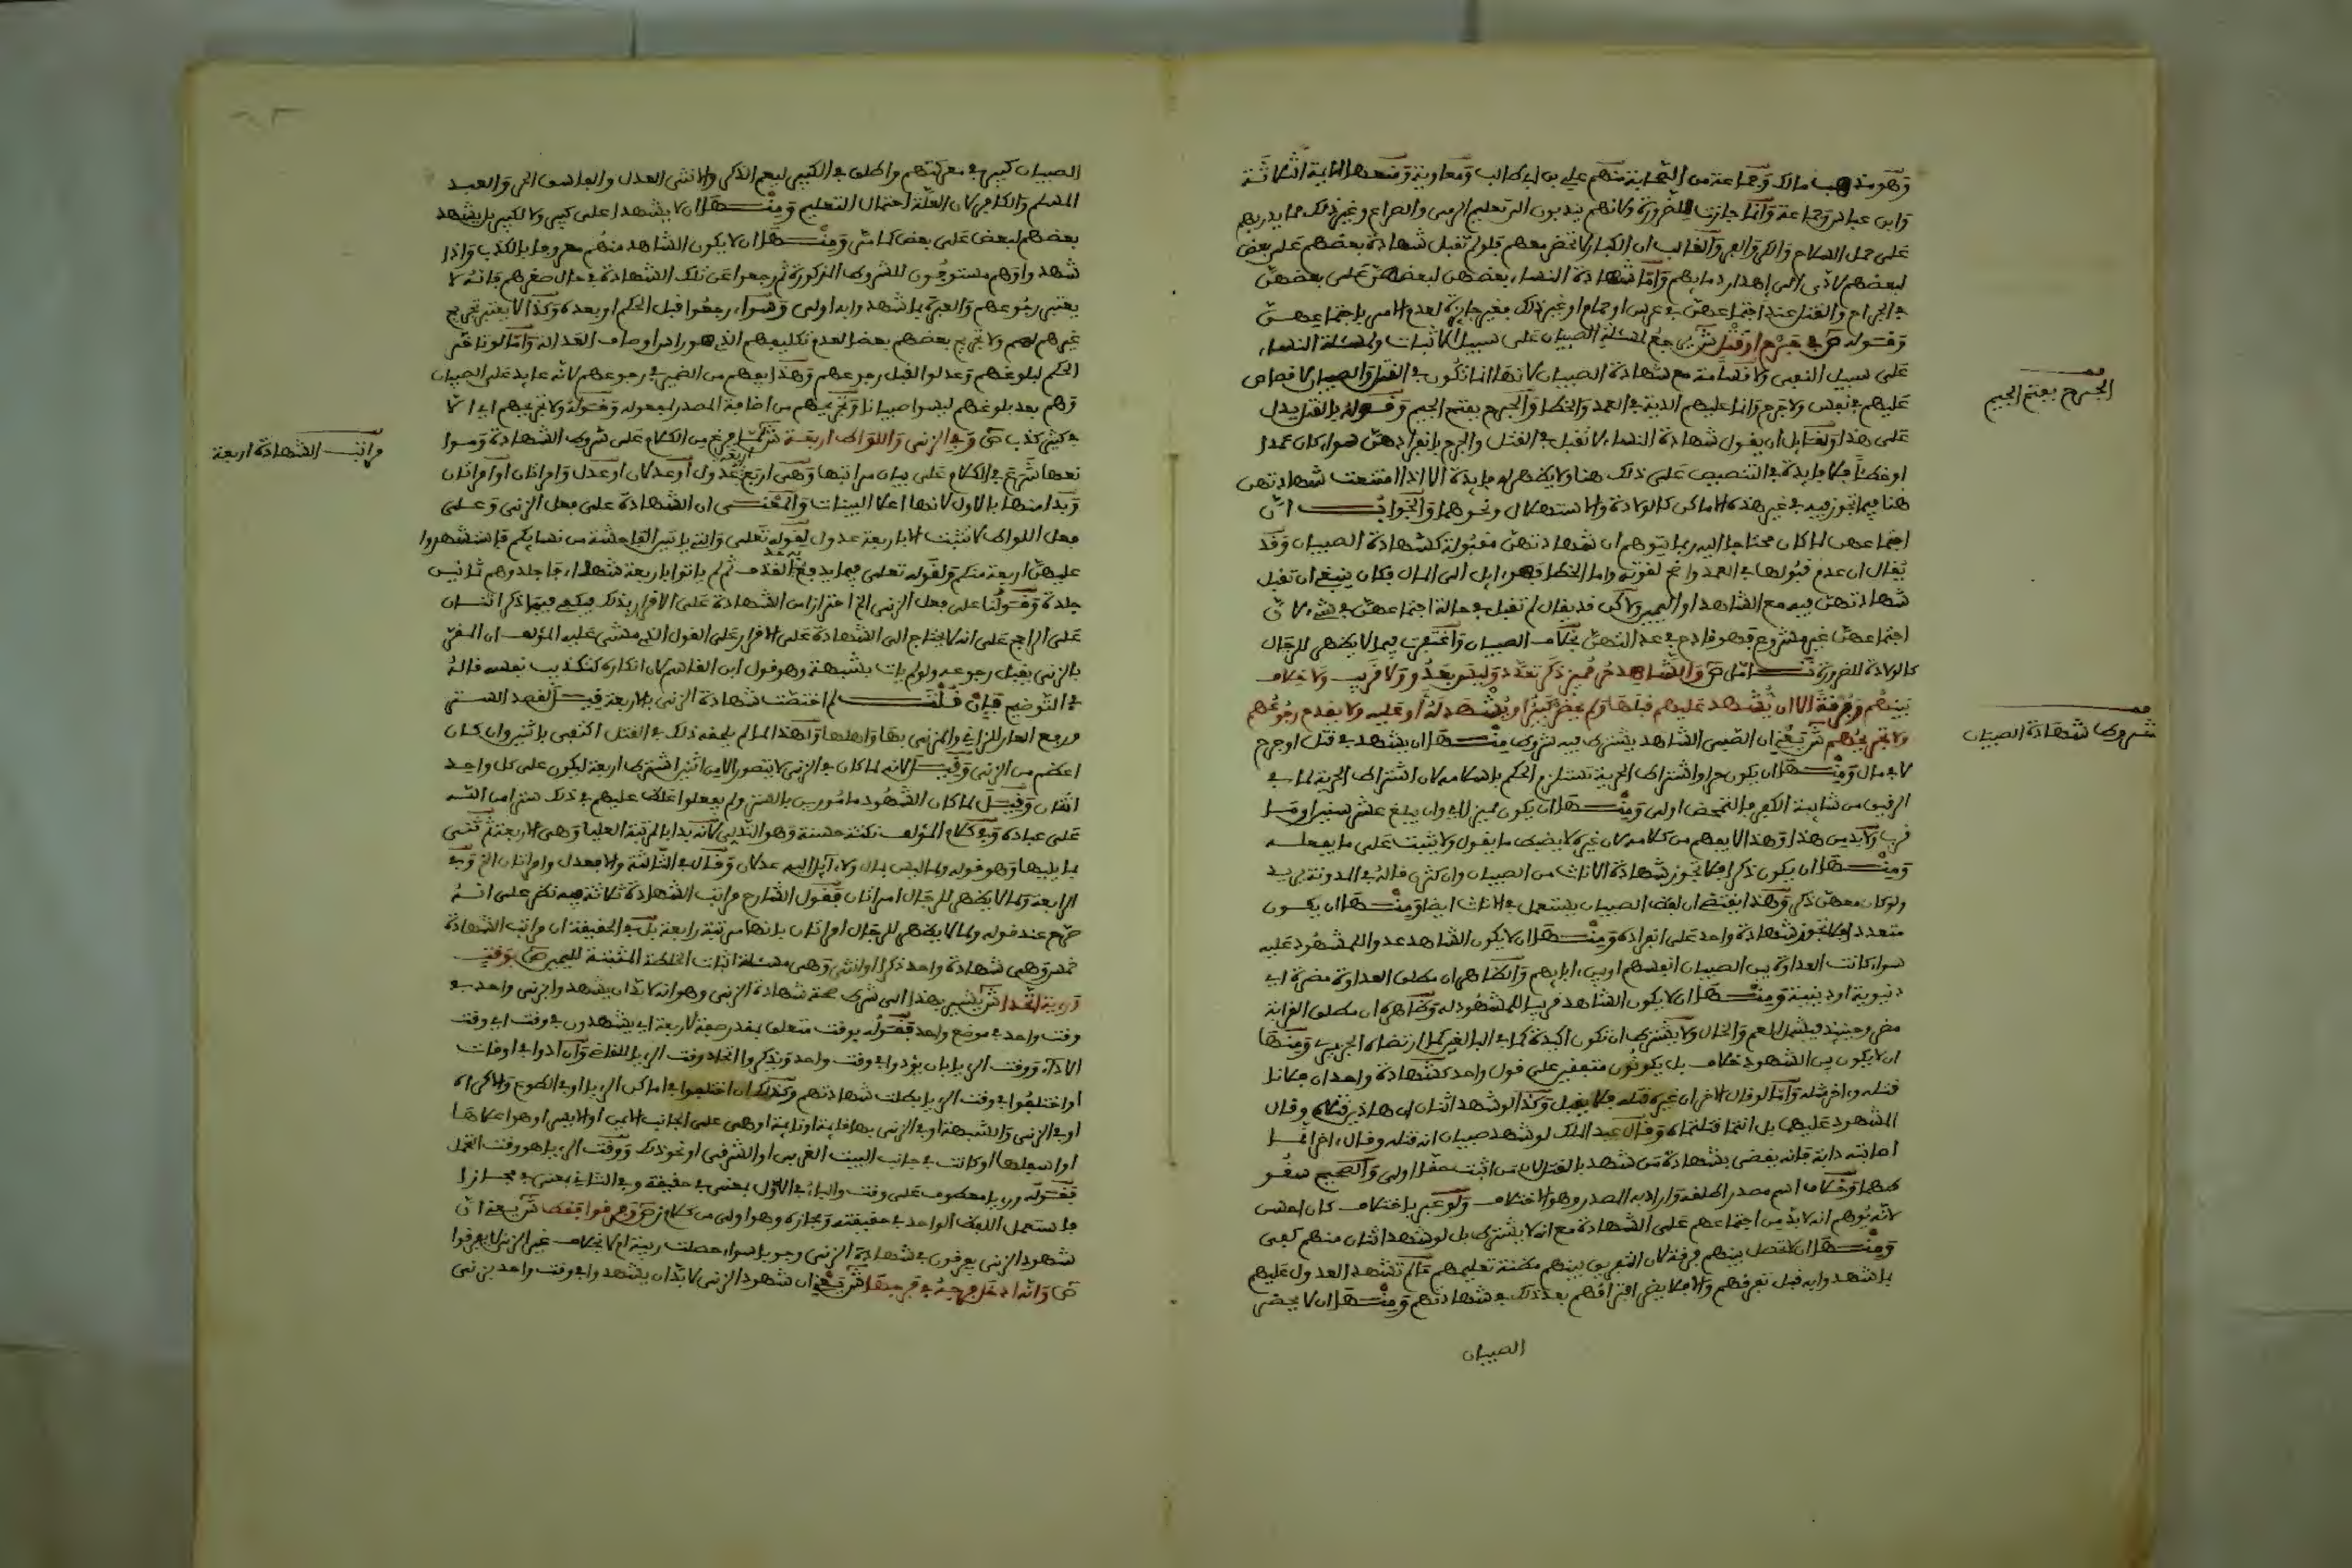 وهو مذهب مالك وجماعة من الصحابة منهم علي بن أبي طالب ومعاوية ومنعها الأئمة الثلاثة
وابن عباس وجماعة وإنما جازت للضرورة ولأنهم يندبون إلى تعليم الرمي والصراع وغير ذلك مما يدربهم
على حمل السلاح والكر والفر والغالب أن الكبار لا تحضر معهم فلو لم تقبل شهادة بعضهم على بعض
لبعضهم لأدى إلى إهدار دمائهم وأما شهادة النساء بعضهن لبعضهن على بعضهن
في الجراح والقتل عند اجتماعهن في عرس أو حمام أو غير ذلك فغير جائزة لعدم الأمر باجتماعهن
وقوله ص في جرح أو قتل ش يرجع لمسئلة الصبيان على سبيل الاثبات ولمسئلة النساء
على سبيل النفي ولا قسامة مع شهادة الصبيان لأنها إنما تكون في القتل والصبيان لا قصاص
عليهم في نفس ولا جرح وإنما عليهم الدية في العمد والخطا والجرح بفتح الجيم وقوله بالقتل يدل
على هذا ولقائل أن يقول شهادة النساء لا تقبل في القتل والجرح بانفرادهن سواء كان عمدا
أو خطأ فلا فائدة في التنصيص على ذلك هنا ولا يظهر له فايدة إلا إذا امتنعت شهادتهن
هنا فيما تجوز فيه في غير هذه الأماكن كالولادة والاستهلال ونحوهما والجواب أن
اجتماعهن لما كان محتاجا إليه ربما يتوهم أن شهادتهن مقبولة كشهادة الصبيان وقد
يقال إن عدم قبولها في العمد واضح لقوته وأما الخطا فهو ءايل إلى المال فكان ينبغي أن تقبل
شهادتهن فيه مع الشاهد أو اليمين ولاكن قد يقال لم تقبل في حالة اجتماعهن في شيء لأن
اجتماعهن غير مشروع فهو قادح في عدالتهن بخلاف الصبيان واغتفرت فيما لا يظهر للرجال
كالولادة للضرورة تأمل ص والشاهد حر مميز ذكر تعدد وليس بعدو ولا قريب ولا خلاف
بينهم وفرقة إلا أن يشهد عليهم قبلها ولم يحضر كبير أو يشهد له أو عليه ولا يقدح رجوعهم
ولا تجريحهم ش يعني أن الصبي الشاهد يشترط فيه شروط منها أن يشهد في قتل أو جرح
لا في مال ومنها أن يكون حرا واشتراط الحرية تستلزم الحكم بإسلامه لأن اشتراط الحرية لما في
الرقيق من شائبة الكفر فالتمحض أولى ومنها أن يكون مميزا أي وأن يبلغ عشر سنين أو ما
قرب ولا بد من هذا وهذا لا يفهم من كلامه لأن غيره لا يضبط ما يقول ولا يثبت على ما يفعله
ومنها أن يكون ذكرا فلا تجوز شهادة الاناث من الصبيان وإن كثرن قاله في المدونة يريد
ولو كان معهن ذكر وهذا يقتضي أن لفظ الصبيان يستعمل في الاناث أيضا ومنها أن يكون
متعددا فلا تجوز شهادة واحد على انفراده ومنها أن لا يكون الشاهد عدوا للمشهود عليه
سواء كانت العداوة بين الصبيان أنفسهم أو بين ءابائهم والظاهر أن مطلق العداوة مضرة أي
دنيوية أو دينية ومنها أن لا يكون الشاهد قريبا للمشهود له وظاهره أن مطلق القرابة
مضر وحينئذ فيشمل العم والخال ولا يشترط أن تكون أكيدة كما في البالغين كما ارتضاه الجزيري ومنها
أن لا يكون بين الشهود خلاف بل يكونون متفقين على قول واحد كشهادة واحد أن فلانا
قتله وءاخر مثله وأما لو قال الآخر أن غيره قتله فلا يقبل وكذا لو شهد اثنان أن هاذين قتلاه وقال
المشهود عليهما بل أنتما قتلتماه وقال عبد الملك لو شهد صبيان أنه قتله وقال ءاخران إنما
أصابته دابة فإنه يقضى بشهادة من شهد بالقتل لأن من أثبت حقا أولى والصحيح سقو
طهما وخلاف اسم مصدر أطلقه وأراد به المصدر وهو الاختلاف ولو عبر باختلاف كان أحسن
لأنه يوهم أنه لا بد من اجتماعهم على الشهادة مع أنه لا يشترط بل لو شهد اثنان منهم كفى
ومنها أن لا تحصل بينهم فرقة لأن التفريق بينهم مظنة تعليمهم ما لم تشهد العدول عليهم
بما شهدوا به قبل تفرقهم وإلا فلا يضر افتراقهم بعد ذلك في شهادتهم ومنها أن لا يحضر
الصبيان
الجرح بفتح الجيم
شروط شهادة الصبيان
الصبيان كبير في معركتهم وأطلق في الكبير ليعم الذكر والأنثى العدل والفاسق الحر والعبد
المسلم والكافر لأن العلة احتمال التعليم ومنها أن لا يشهدوا على كبير ولا لكبير بل يشهد
بعضهم لبعض على بعض كما مر ومنها أن لا يكون الشاهد منهم معروفا بالكذب وإذا
شهدوا وهم مستوفون للشروط المذكورة ثم رجعوا عن تلك الشهادة في حال صغرهم فإنه لا
يعتبر رجوعهم والعبرة بما شهدوا به أولى وسواء رجعوا قبل الحكم أو بعده وكذا لا يعتبر تجريح
غيرهم لهم ولا تجريح بعضهم بعضا لعدم تكليفهم الذي هو رأس أوصاف العدالة وأما لو تأخر
الحكم لبلوغهم وعدلوا لقبل رجوعهم وهذا يفهم من الضمير في رجوعهم لأنه عايد على الصبيان
وهم بعد بلوغهم ليسوا صبيانا وتجريحهم من إضافة المصدر لمفعوله وقوله ولا تجريحهم أي إلا
في كثير كذب ص وفي الزنى واللواط أربعة ش لما فرغ من الكلام على شروط الشهادة وموا
نعها شرع في الكلام على بيان مراتبها وهي أربع أربعة عدول أو عدلان أو عدل وامرأتان أو امرأتان
وبدأ منها بالأول لأنها أعلا البينات والمعنى أن الشهادة على فعل الزنى وعلى
فعل اللواط لا تثبت إلا بأربعة عدول لقوله تعلى والتي ياتين الفاحشة من نسايكم فاستشهدوا
عليهن أربعة منكم ولقوله تعلى فيما يدفع به حد القذف ثم لم ياتوا بأربعة شهداء فاجلدوهم ثمانين
جلدة وقولنا على فعل الزنى الخ احترازا من الشهادة على الاقرار بذلك فيكفي فيما ذكر اثنان
على الراجح على أنه لا يحتاج إلى الشهادة على الاقرار على القول الذي مشى عليه المؤلف أن المقر
بالزنى يقبل رجوعه ولو لم يات بشبهة وهو قول ابن القاسم لأن إنكاره كتكذيب نفسه قاله
في التوضيح فإن قلت لم اختصت شهادة الزنى بالأربعة قيل لقصد الستر
ودفع العار للزاني والمزني بها وأهلها ولهذا لما لم يلحقه ذلك في القتل اكتفي باثنين وإن كان
أعظم من الزنى وقيل لأنه لما كان في الزنى لا يتصور إلا من اثنين اشترط أربعة ليكون على كل واحد
اثنان وقيل لما كان الشهود مامورين بالستر ولم يفعلوا غلظ عليهم في ذلك سترا من الله
على عباده وفي كلام المؤلف نكتة حسنة وهو التدلي لأنه بدأ بالمرتبة العليا وهي الأربعة ثم ثنى
بما يليها وهو قوله ولما ليس بمال ولا ءايل إليه عدلان وقال في الثالثة وإلا فعدل وامرأتان الخ وفي
الرابعة ولما لا يظهر للرجال امرأتان فقول الشارح مراتب الشهادة ثلاثة فيه نظر على أنه
صرح عند قوله ولما لا يظهر للرجال امرأتان بأنها مرتبة رابعة بل في الحقيقة أن مراتب الشهادة
خمس وهي شهادة واحد ذكرا أو أنثى وهي مسئلة اثبات الخلطة المثبتة لليمين ص بوقت
ورؤية اتحدا ش يشير بهذا إلى شرط صحة شهادة الزنى وهو أنه لا بد أن يشهدوا بزنى واحد في
وقت واحد في موضع واحد فقوله بوقت متعلق بمقدر صفة لأربعة أي يشهدون في وقت أي وقت
الأداء ووقت الرؤيا بأن يؤدوا في وقت واحد ويذكروا اتحاد وقت الرؤيا للقاضي وإن أدوا في أوقات
أو اختلفوا في وقت الرؤيا بطلت شهادتهم وكذلك إن اختلفوا في أماكن الرؤيا أو في الطوع والاكراه
أو في الزنى والشبهة أو في الزنى بها قايمة أو نايمة أو هي على الجانب الأيمن أو الأيسر أو هو أعلاها
أو أسفلها أو كانت في جانب البيت الغربي أو الشرقي أو نحو ذلك ووقت الرؤيا هو وقت التحمل
فقوله ورؤيا معطوف على وقت والباء في الأول بمعنى في حقيقة وفي الثاني بمعنى في مجازا
فاستعمل اللفظ الواحد في حقيقته ومجازه وهو أولى من كلام ز ص وفرقوا فقط ش يعني أن
شهود الزنى يفرقون في شهادة الزنى وجوبا سواء حصلت ريبة أم لا بخلاف غير الزنى لا يفرقوا
ص وأنه أدخل فرجه في فرجها ش يعني أن شهود الزنى لا بد أن يشهدوا في وقت واحد بزنى
مراتب الشهادة أربعة